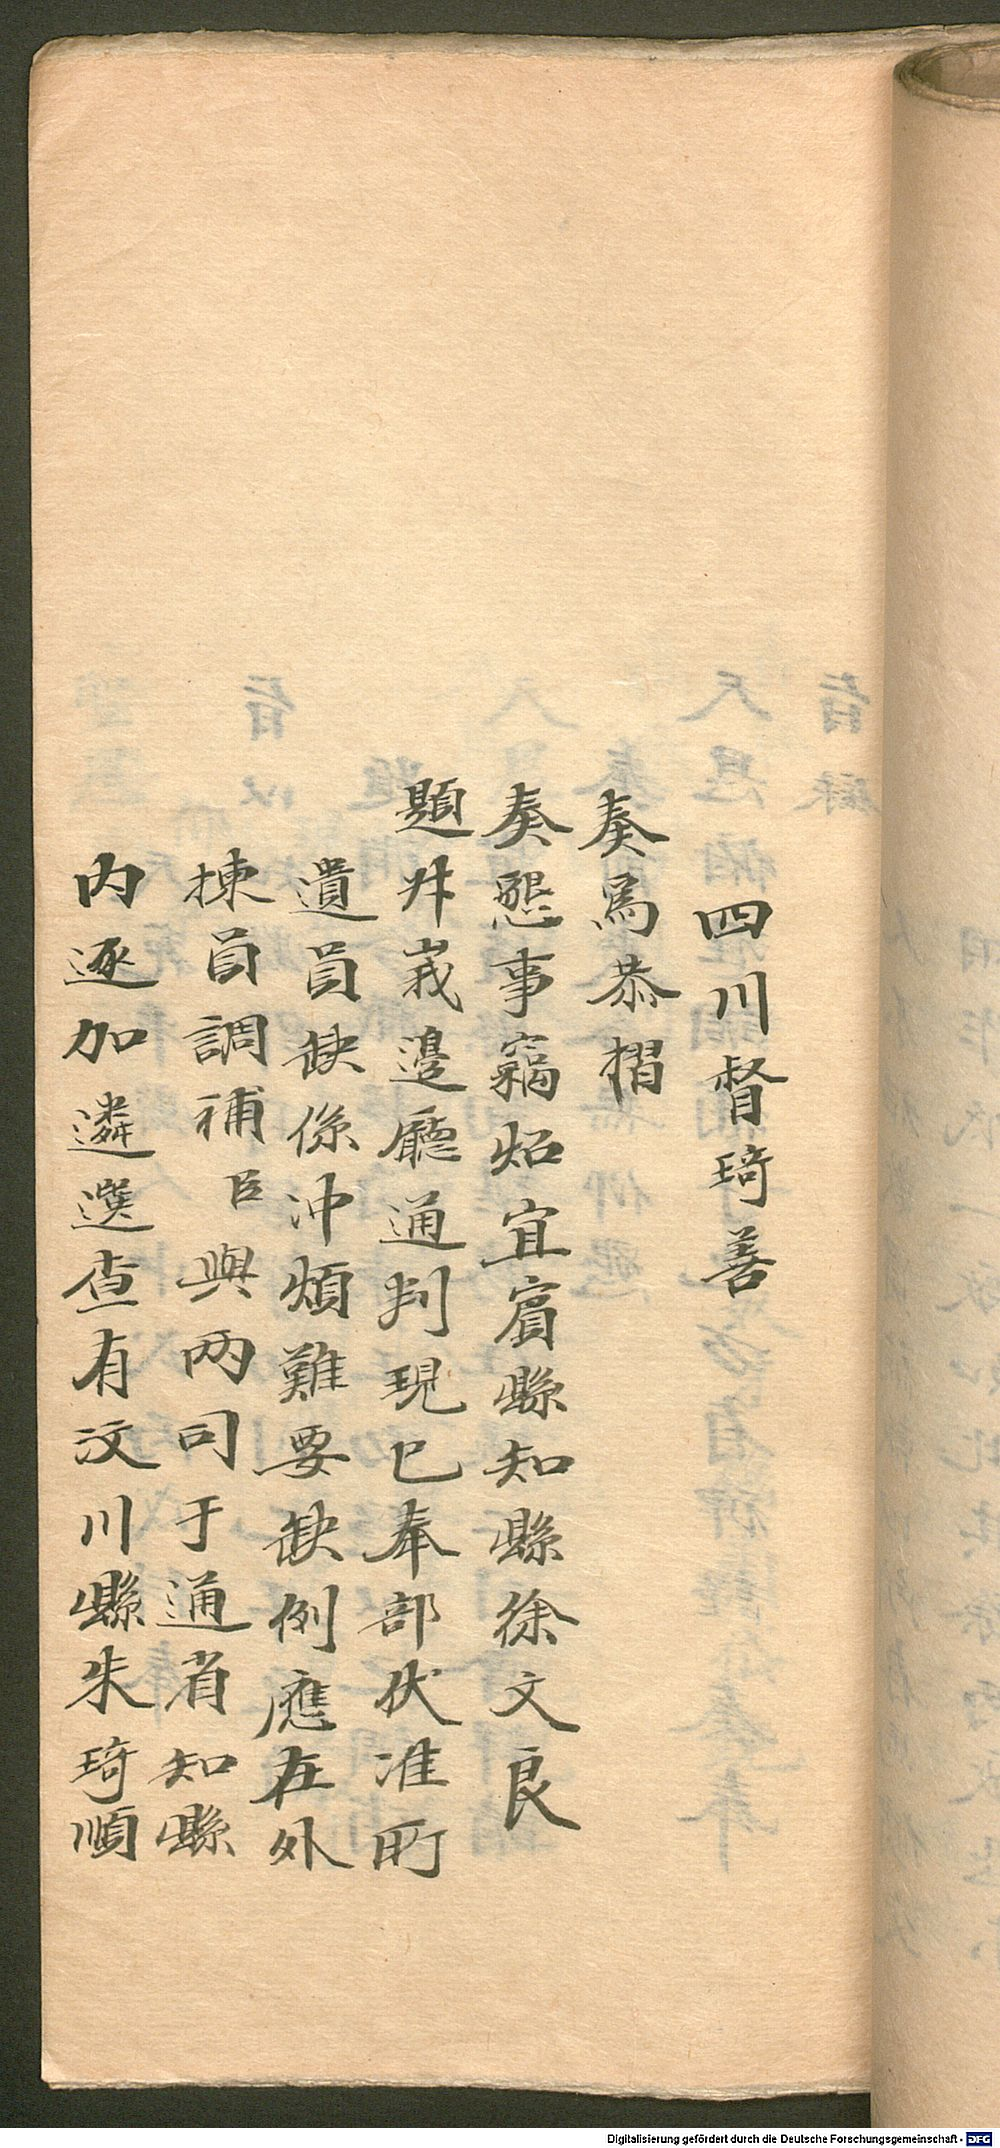 四川督琦善
奏爲恭摺
奏懇事竊炤宜賓縣知縣徐文良
題升峩邊廳通判現已奉部伏准所
遺員缺係沖煩難要缺例應在外
揀員調補臣與両司于通省知縣
内逐加遴選查有汶川縣朱琦順
Digitalisierung gefördert durch die Deutsche Forschungsgemeinschaft - DFG